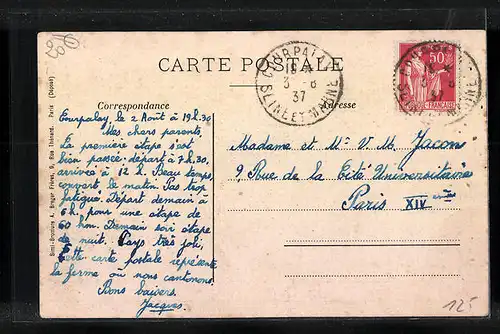 CARTE POSTALE
COURPALAY
3 - 8
37
SEINE ET MARNE
50c
FRANÇAISE
Correspondance
Adresse
Courpalay, le 2 Août à 19h.30
Mes chers parents.
La première étape s'est
bien passée : départ à 7h.30,
arrivée à 12 h. Beau temps,
couvert le matin. Pas trop
fatigué. Départ demain à
6h. pour une étape de
60 km. Demain soir étape
de nuit. Pays très joli,
Cette carte postale représente
la ferme où nous cantonnons.
Bons baisers.
Jacques
Madame et Mr V. M. Jacons
9 Rue de la Cité Universitaire
Paris XIVème
Simi-Bromure A. Breger Frères, 9, Rue Thénard. Paris (Déposé)
125